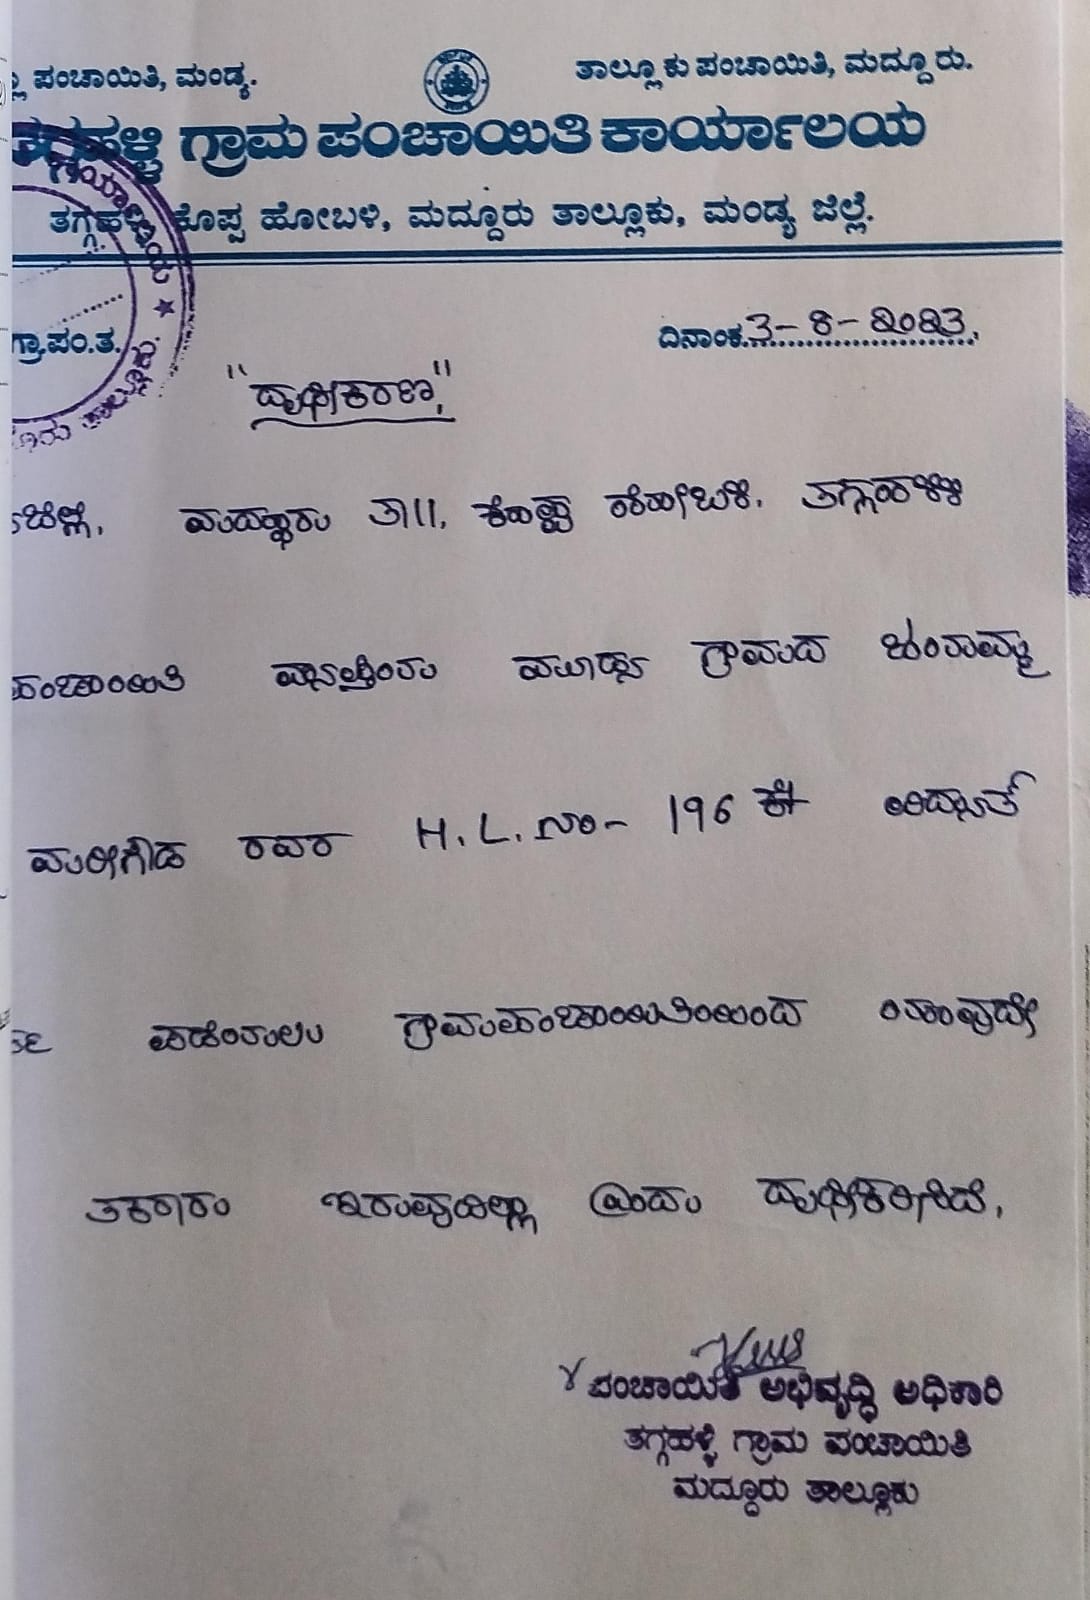 ಪಂಚಾಯಿತಿ, ಮಂಡ್ಯ.
ತಾಲ್ಲೂಕು ಪಂಚಾಯಿತಿ, ಮದ್ದೂರು.
ತಗ್ಗಹಳ್ಳಿ ಗ್ರಾಮ ಪಂಚಾಯಿತಿ ಕಾರ್ಯಾಲಯ
ತಗ್ಗಹಳ್ಳಿ, ಕೊಪ್ಪ ಹೋಬಳಿ, ಮದ್ದೂರು ತಾಲ್ಲೂಕು, ಮಂಡ್ಯ ಜಿಲ್ಲೆ.
ಗ್ರಾ.ಪಂ.ತ.
ದಿನಾಂಕ.3-8-2023.
"ದೃಢೀಕರಣ"
ಜಿಲ್ಲೆ, ಮದ್ದೂರು ತಾ||, ಕೊಪ್ಪ ಹೋಬಳಿ, ತಗ್ಗಹಳ್ಳಿ
ಪಂಚಾಯಿತಿ ವ್ಯಾಪ್ತಿಯ ಗ್ರಾಮದ
ರವರ H.L.ನಂ- 196 ಕ್ಕೆ ವಿದ್ಯುತ್
ಪಡೆಯಲು ಗ್ರಾಮಪಂಚಾಯಿತಿಯಿಂದ ಯಾವುದೇ
ತಕರಾರು ಇರುವುದಿಲ್ಲಾ ಎಂದು ದೃಢೀಕರಿಸಿದೆ,
ಪಂಚಾಯಿತಿ ಅಭಿವೃದ್ಧಿ ಅಧಿಕಾರಿ
ತಗ್ಗಹಳ್ಳಿ ಗ್ರಾಮ ಪಂಚಾಯಿತಿ
ಮದ್ದೂರು ತಾಲ್ಲೂಕು